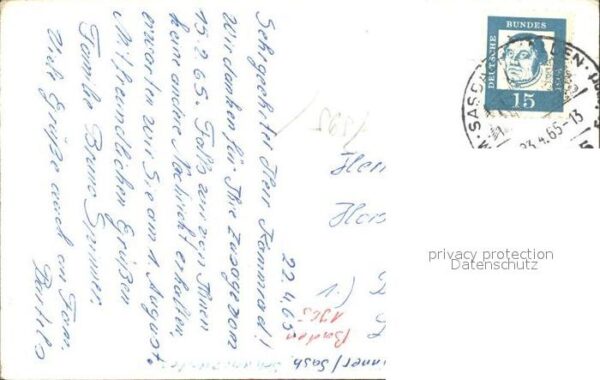 22.4.65.
Sehr geehrter Herr Kammrad!
Wir danken für Ihre Zusage vom
15.2.65. Falls wir von Ihnen
keine andre Nachricht erhalten,
erwarten wir Sie am 1. August.
Mit freundlichen Grüßen
Familie Bruno Spinner.
Viele Grüße auch an Fam.
Bartels
DEUTSCHE BUNDES
15
23.4.65-13
Baden
1965
privacy protection
Datenschutz